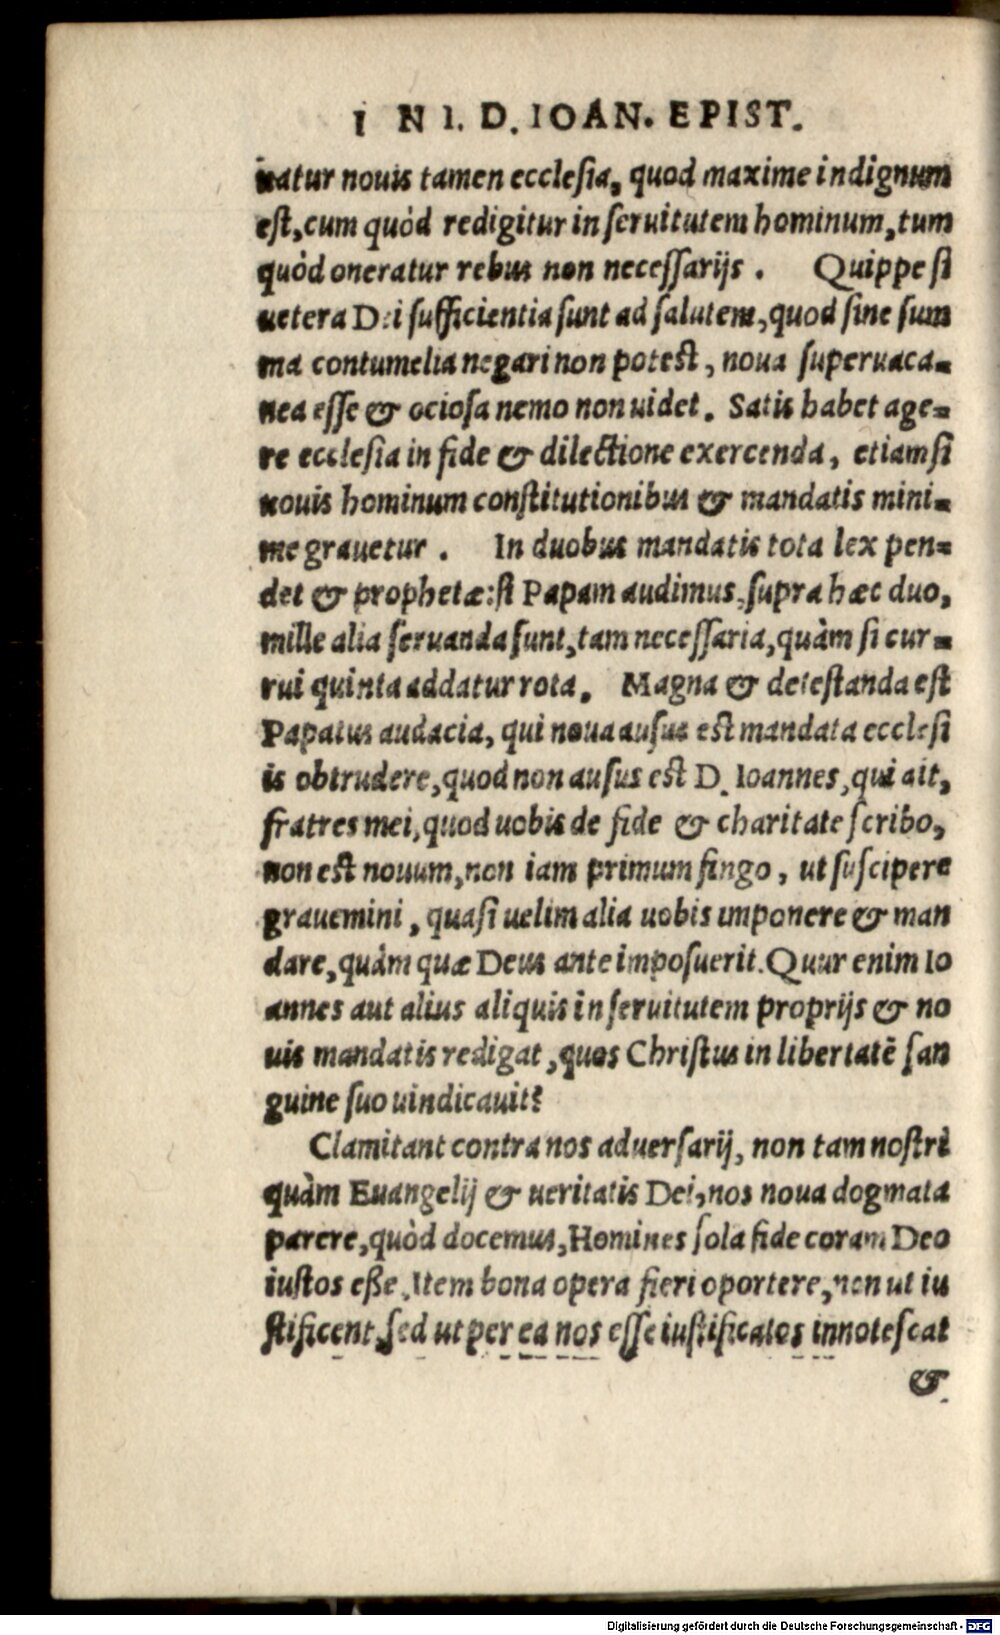 IN I. D. IOAN. EPIST.
uatur nouis tamen ecclesia, quod maxime indignum
est, cum quòd redigitur in seruitutem hominum, tum
quòd oneratur rebus non necessarijs. Quippe si
uetera Dei sufficientia sunt ad salutem, quod sine sum
ma contumelia negari non potest, noua superuaca-
nea esse & ociosa nemo non uidet. Satis habet age-
re ecclesia in fide & dilectione exercenda, etiamsi
nouis hominum constitutionibus & mandatis mini-
me grauetur. In duobus mandatis tota lex pen-
det & prophetæ: si Papam audimus, supra hæc duo,
mille alia seruanda sunt, tam necessaria, quàm si cur-
rui quinta addatur rota. Magna & detestanda est
Papatus audacia, qui noua ausus est mandata ecclesi
is obtrudere, quod non ausus est D. Ioannes, qui ait,
fratres mei, quod uobis de fide & charitate scribo,
non est nouum, non iam primum fingo, ut suscipere
grauemini, quasi uelim alia uobis imponere & man
dare, quàm quæ Deus ante imposuerit. Quur enim Io
annes aut alius aliquis in seruitutem proprijs & no
uis mandatis redigat, quos Christus in libertatē san
guine suo uindicauit?
Clamitant contra nos aduersarij, non tam nostri
quàm Euangelij & ueritatis Dei, nos noua dogmata
parere, quòd docemus, Homines sola fide coram Deo
iustos eße. Item bona opera fieri oportere, non ut iu
stificent, sed ut per ea nos esse iustificatos innotescat
&
Digitalisierung gefördert durch die Deutsche Forschungsgemeinschaft - DFG